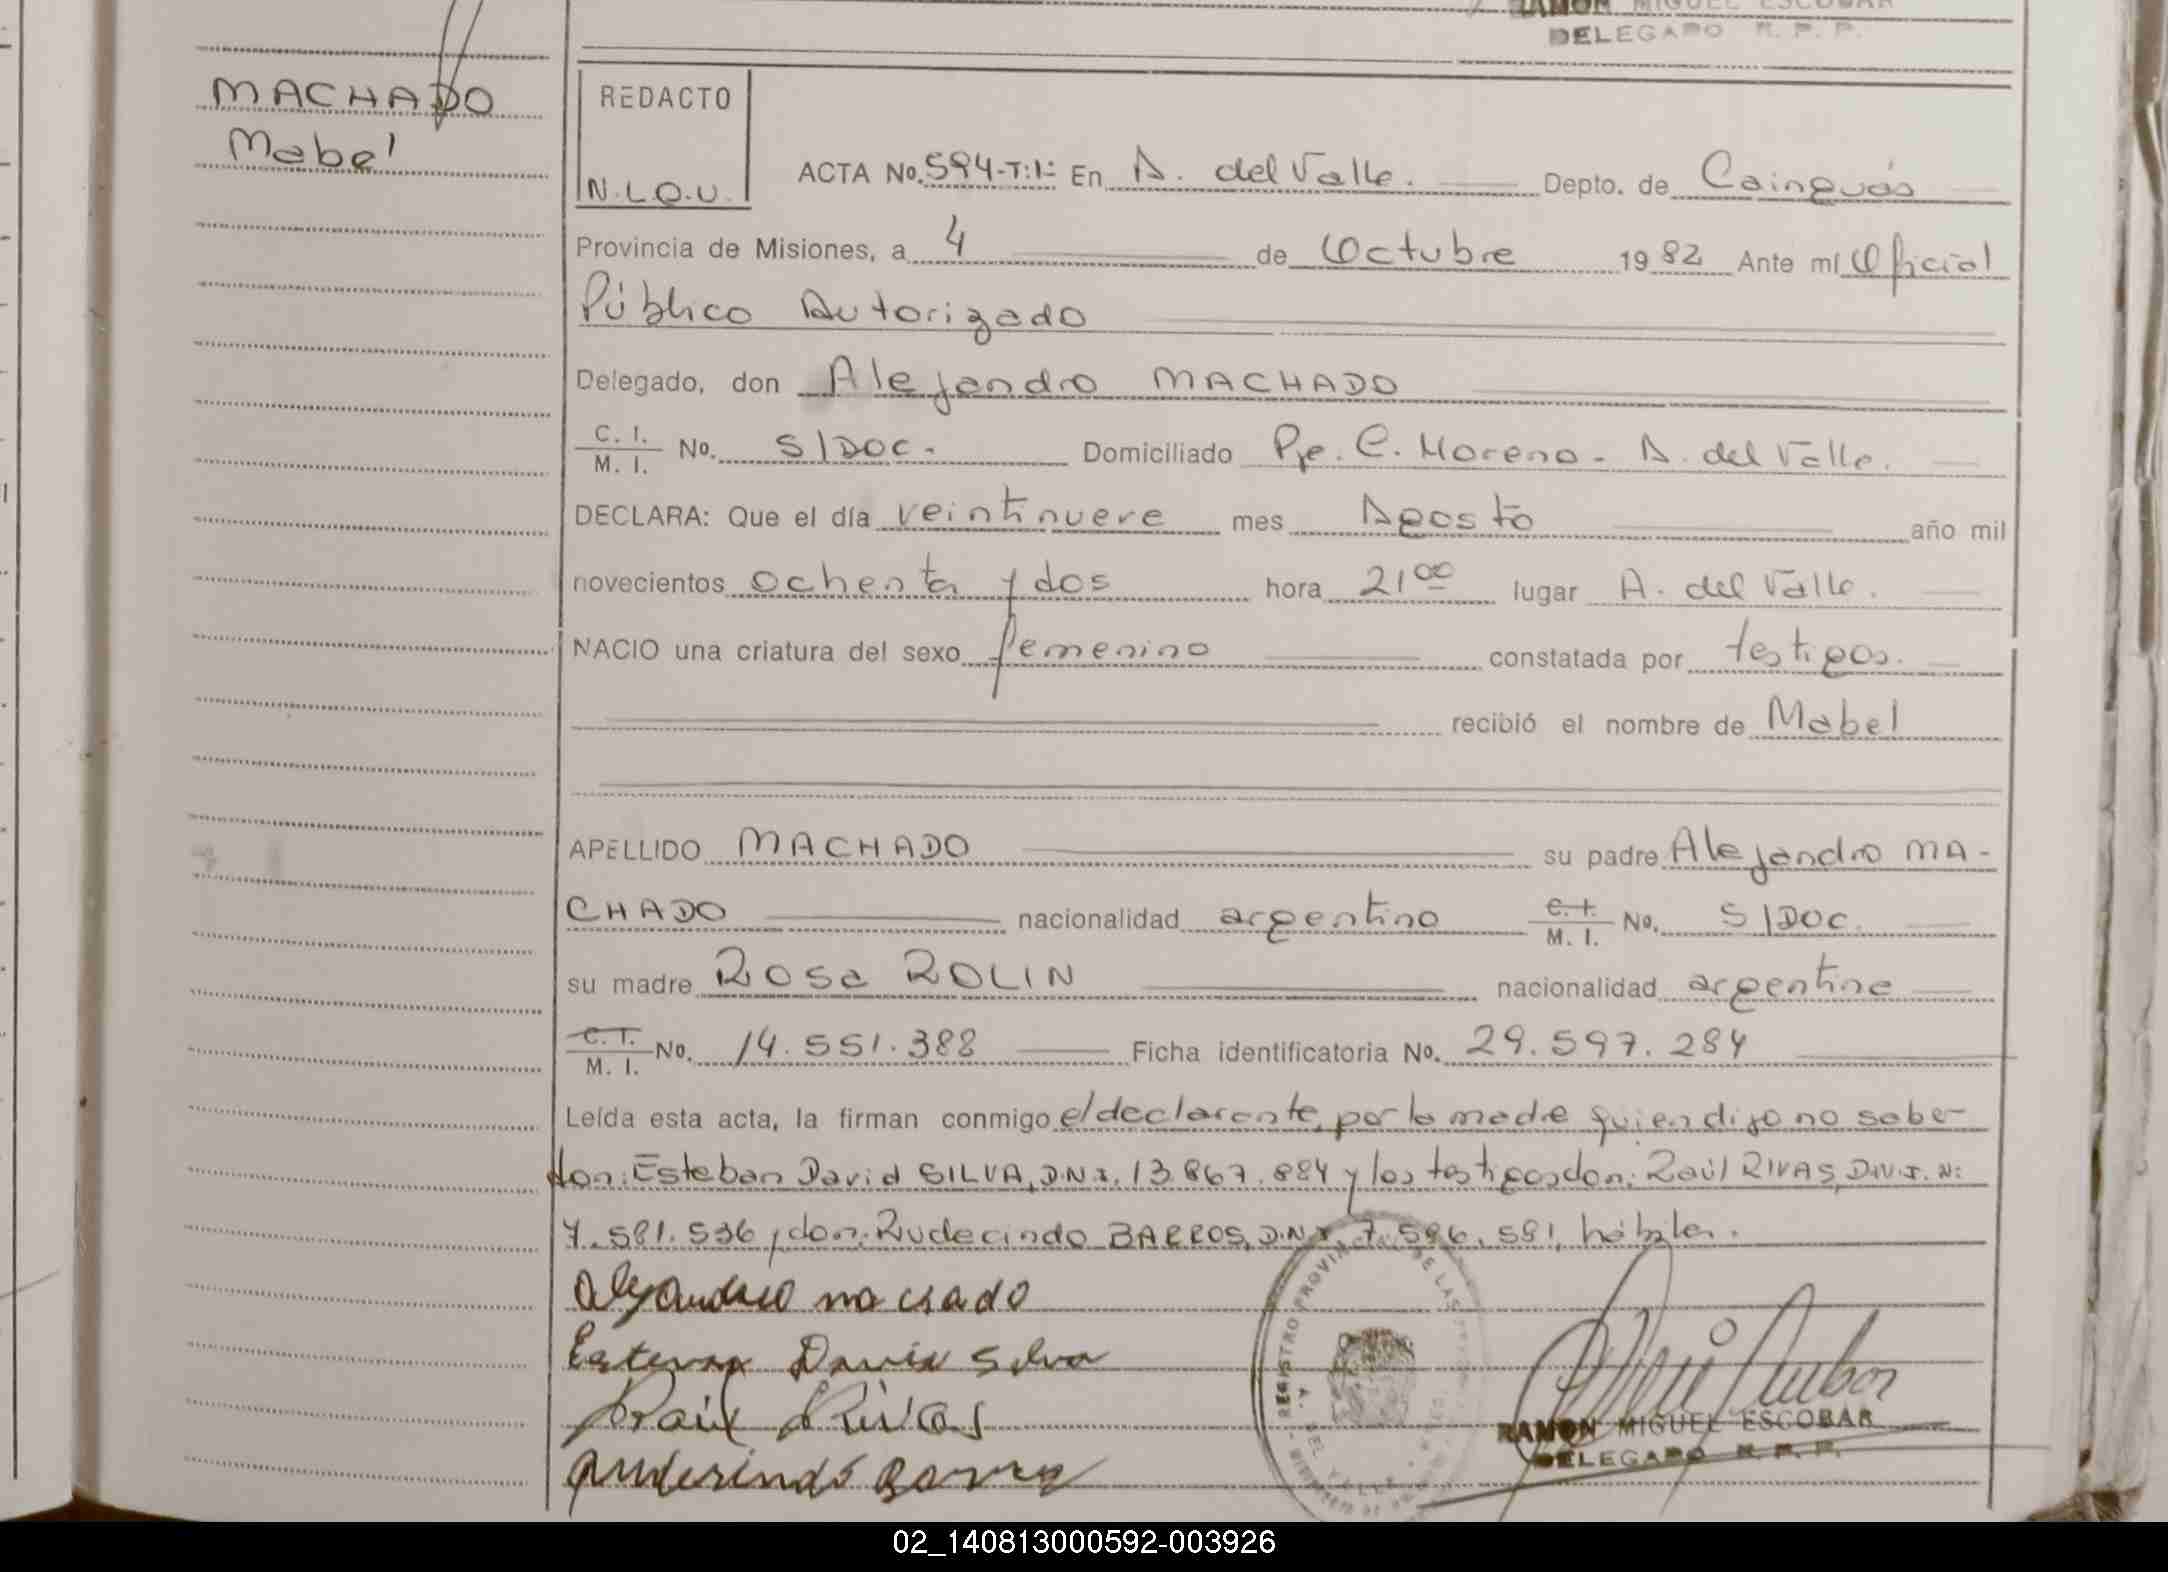 RAMON MIGUEL ESCOBAR
DELEGADO R. P. P.
MACHADO
Mabel
REDACTO
N.L.O.U.
ACTA No. 594-T:1: En A. del Valle. Depto. de Cainguás
Provincia de Misiones, a 4 de Octubre 1982 Ante mí Oficial
Público Autorizado
Delegado, don Alejandro MACHADO
C. I. / M. I. No. S/DOC. Domiciliado Pje. C. Moreno - A. del Valle.
DECLARA: Que el día veintinueve mes Agosto año mil
novecientos ochenta y dos hora 21 00 lugar A. del Valle.
NACIO una criatura del sexo femenino constatada por testigos.
recibió el nombre de Mabel
APELLIDO MACHADO su padre Alejandro MA-
CHADO nacionalidad argentino C. I. / M. I. No. S/DOC.
su madre Rosa ROLIN nacionalidad argentina
C. I. / M. I. No. 14.551.388 Ficha identificatoria No. 29.597.284
Leída esta acta, la firman conmigo el declarante, por la madre quien dijo no sabe-
don: Esteban David SILVA, D.N.I. 13.867.884 y los testigos don: Raúl RIVAS, D.N.I. N:
7.581.536 y don: Rudecindo BARROS, D.N.I. 7.586.581, hábiles.
Alejandro machado
Estevan David Silva
Raúl Rivas
Ruderindo Barros
REGISTRO PROVINCIAL DE LAS
DEL VALLE
RAMON MIGUEL ESCOBAR
DELEGADO R. P. P.
02_140813000592-003926